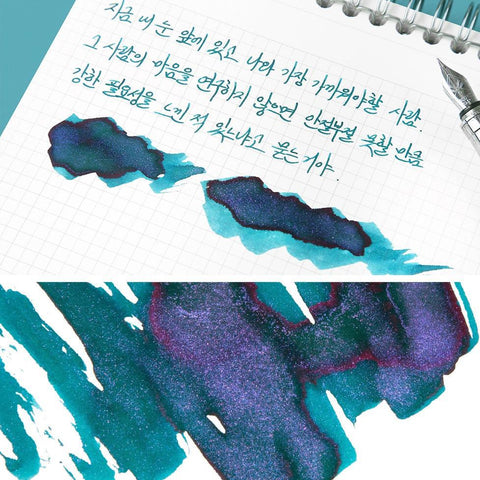 지금 내 눈 앞에 있고 나와 가장 가까워야할 사람.
그 사람의 마음을 연구하지 않으면 안절부절 못할 만큼
강한 필요성을 느낀 적 있느냐고 묻는거야